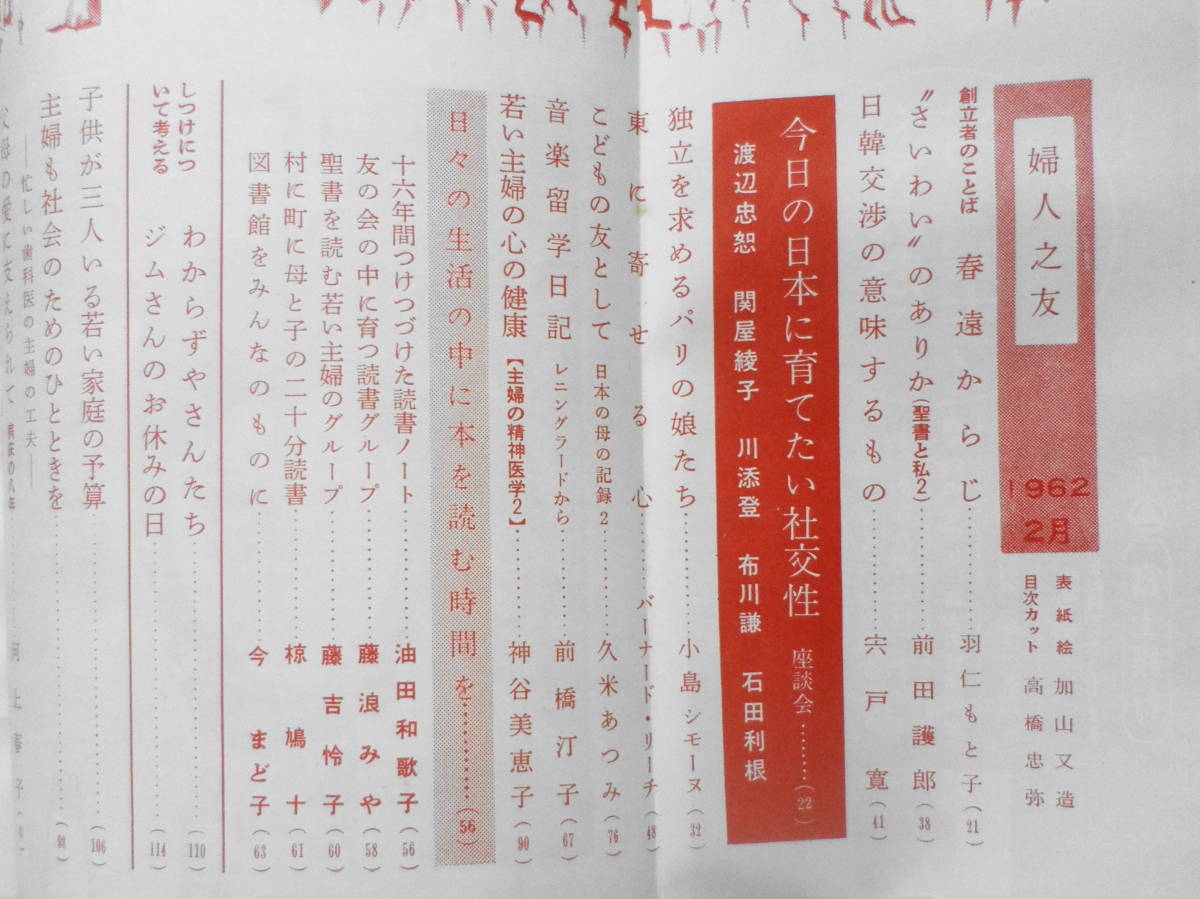 婦人之友
1962
2月
表紙絵 加山又造
目次カット 高橋忠弥
創立者のことば 春遠からじ………羽仁もと子(21)
〝さいわい〟のありか(聖書と私2)………前田護郎(38)
日韓交渉の意味するもの………宍戸寛(41)
今日の日本に育てたい社交性 座談会………(22)
渡辺忠恕 関屋綾子 川添登 布川謙 石田利根
独立を求めるパリの娘たち………小島シモーヌ(32)
東に寄せる心………バーナード・リーチ(48)
こどもの友として 日本の母の記録2………久米あつみ(76)
音楽留学日記 レニングラードから………前橋汀子(67)
若い主婦の心の健康【主婦の精神医学2】………神谷美恵子(90)
日々の生活の中に本を読む時間を………(56)
十六年間つけつづけた読書ノート………油田和歌子(56)
友の会の中に育つ読書グループ………藤浪みや(58)
聖書を読む若い主婦のグループ………藤吉怜子(60)
村に町に母と子の二十分読書………椋鳩十(61)
図書館をみんなのものに………今まど子(63)
しつけについて考える
わからずやさんたち………(110)
ジムさんのお休みの日………(114)
子供が三人いる若い家庭の予算………(106)
主婦も社会のためのひとときを………(98)
―忙しい歯科医の主婦の工夫―
父母の愛に支えられて